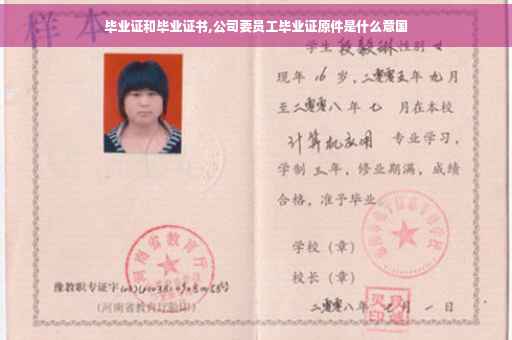 样本
毕业证和毕业证书,公司要员工毕业证原件是什么意图
学生 段毅琳 性别 女
现年 16 岁,二零零五年 九 月
至二零零八年 七 月在本校
计算机应用 专业学习,
学制 三 年,修业期满,成绩
合格,准予毕业
学校（章）
校长（章）
二零零八年 七 月 一 日
河南省教育厅
豫教职专证字
(河南省教育厅监印)